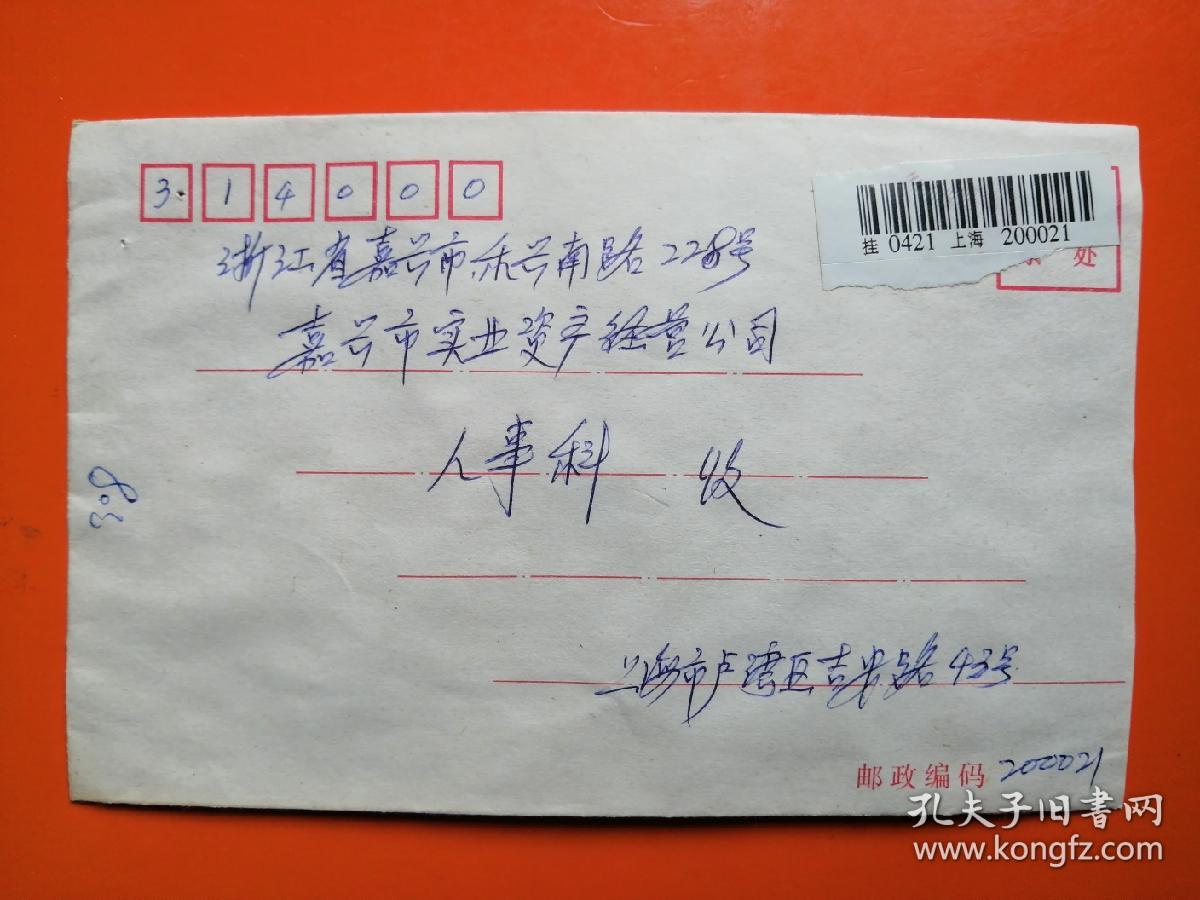 314000
挂 0421 上海 200021
处
浙江省嘉兴市禾兴南路228号
嘉兴市实业资产经营公司
人事科 收
308
上海市卢湾区吉安路43号
邮政编码 200021
孔夫子旧书网
www.kongfz.com